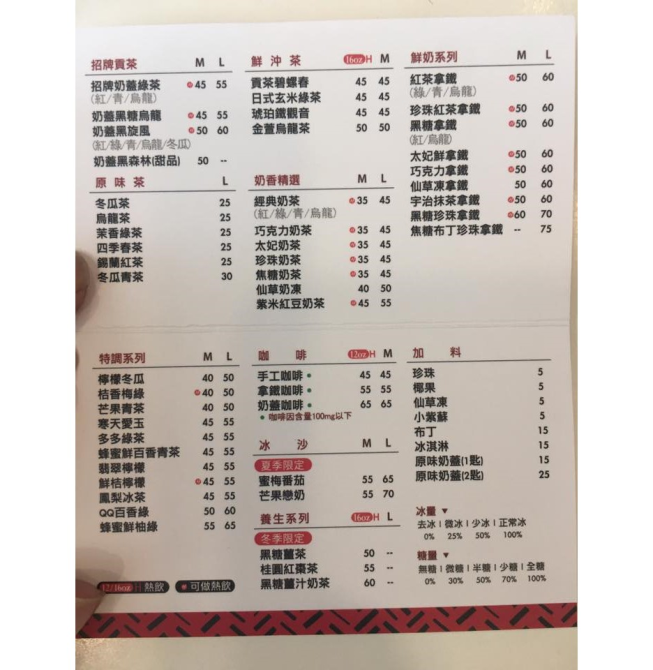 招牌貢茶 M L
招牌奶蓋綠茶 45 55
(紅/青/烏龍)
奶蓋黑糖烏龍 45 55
奶蓋黑旋風 50 60
(紅/綠/青/烏龍/冬瓜)
奶蓋黑森林(甜品) 50 --
原味茶 L
冬瓜茶 25
烏龍茶 25
茉香綠茶 25
四季春茶 25
錫蘭紅茶 25
冬瓜青茶 30
鮮沖茶 16oz H M
貢茶碧螺春 45 45
日式玄米綠茶 45 45
琥珀鐵觀音 45 45
金萱烏龍茶 50 50
奶香精選 M L
經典奶茶 35 45
(紅/綠/青/烏龍)
巧克力奶茶 35 45
太妃奶茶 35 45
珍珠奶茶 35 45
焦糖奶茶 35 45
仙草奶凍 40 50
紫米紅豆奶茶 45 55
鮮奶系列 M L
紅茶拿鐵 50 60
(綠/青/烏龍)
珍珠紅茶拿鐵 50 60
黑糖拿鐵 50 60
(紅/烏龍)
太妃鮮拿鐵 50 60
巧克力拿鐵 50 60
仙草凍拿鐵 50 60
宇治抹茶拿鐵 50 60
黑糖珍珠拿鐵 60 70
焦糖布丁珍珠拿鐵 -- 75
特調系列 M L
檸檬冬瓜 40 50
桔香梅綠 40 50
芒果青茶 40 50
寒天愛玉 45 55
多多綠茶 45 55
蜂蜜鮮百香青茶 45 55
翡翠檸檬 45 55
鮮桔檸檬 45 55
鳳梨冰茶 45 55
QQ百香綠 50 60
蜂蜜鮮柚綠 55 65
12/16oz H 熱飲 可做熱飲
咖啡 12oz H M
手工咖啡 45 45
拿鐵咖啡 55 55
奶蓋咖啡 65 65
咖啡因含量100mg以下
冰沙 M L
夏季限定
蜜梅番茄 55 65
芒果戀奶 55 70
養生系列 16oz H L
冬季限定
黑糖薑茶 50 --
桂圓紅棗茶 55 --
黑糖薑汁奶茶 60 --
加料
珍珠 5
椰果 5
仙草凍 5
小紫蘇 5
布丁 15
冰淇淋 15
原味奶蓋(1匙) 15
原味奶蓋(2匙) 25
冰量 ▼
去冰 | 微冰 | 少冰 | 正常冰
0% 25% 50% 100%
糖量 ▼
無糖 | 微糖 | 半糖 | 少糖 | 全糖
0% 30% 50% 70% 100%